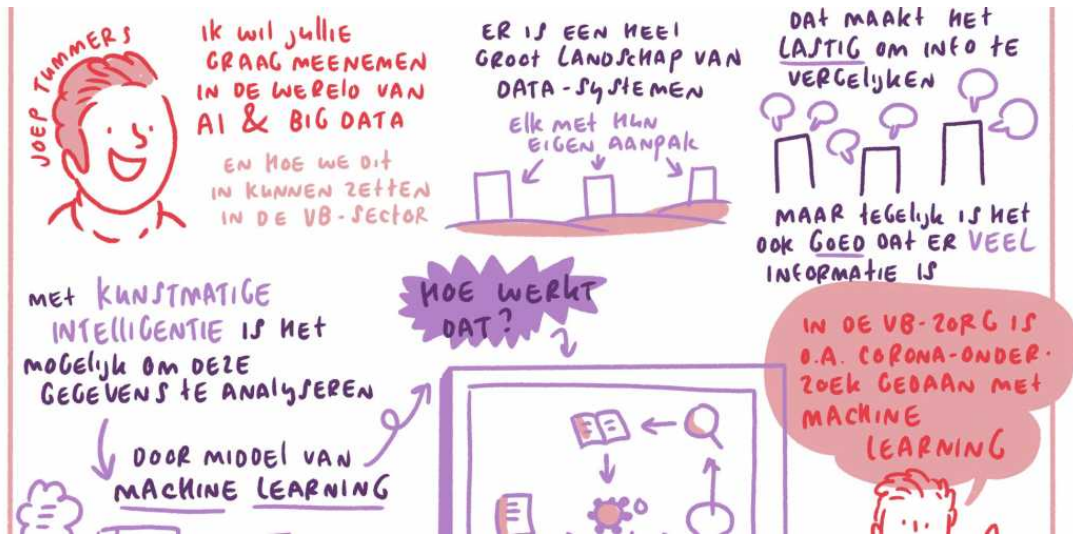 JOEP TUMMERS
Ik wil jullie
GRAAG MEENEMEN
IN DE WERELD VAN
AI & BIG DATA
EN HOE WE DIT
IN KUNNEN ZETTEN
IN DE VB-SECTOR
ER IS EEN HEEL
GROOT LANDSCHAP VAN
DATA-SYSTEMEN
Elk met HUN
EIGEN AANPAK
DAT MAAKT HET
LASTIG OM INFO TE
VERGELIJKEN
MAAR TEGELIJK IS HET
OOK GOED DAT ER VEEL
INFORMATIE IS
MET KUNSTMATIGE
INTELLIGENTIE IS HET
MOGELIJK OM DEZE
GEGEVENS TE ANALYSEREN
DOOR MIDDEL VAN
MACHINE LEARNING
HOE WERKT
DAT?
IN DE VB-ZORG IS
O.A. CORONA-ONDER-
ZOEK GEDAAN MET
MACHINE
LEARNING